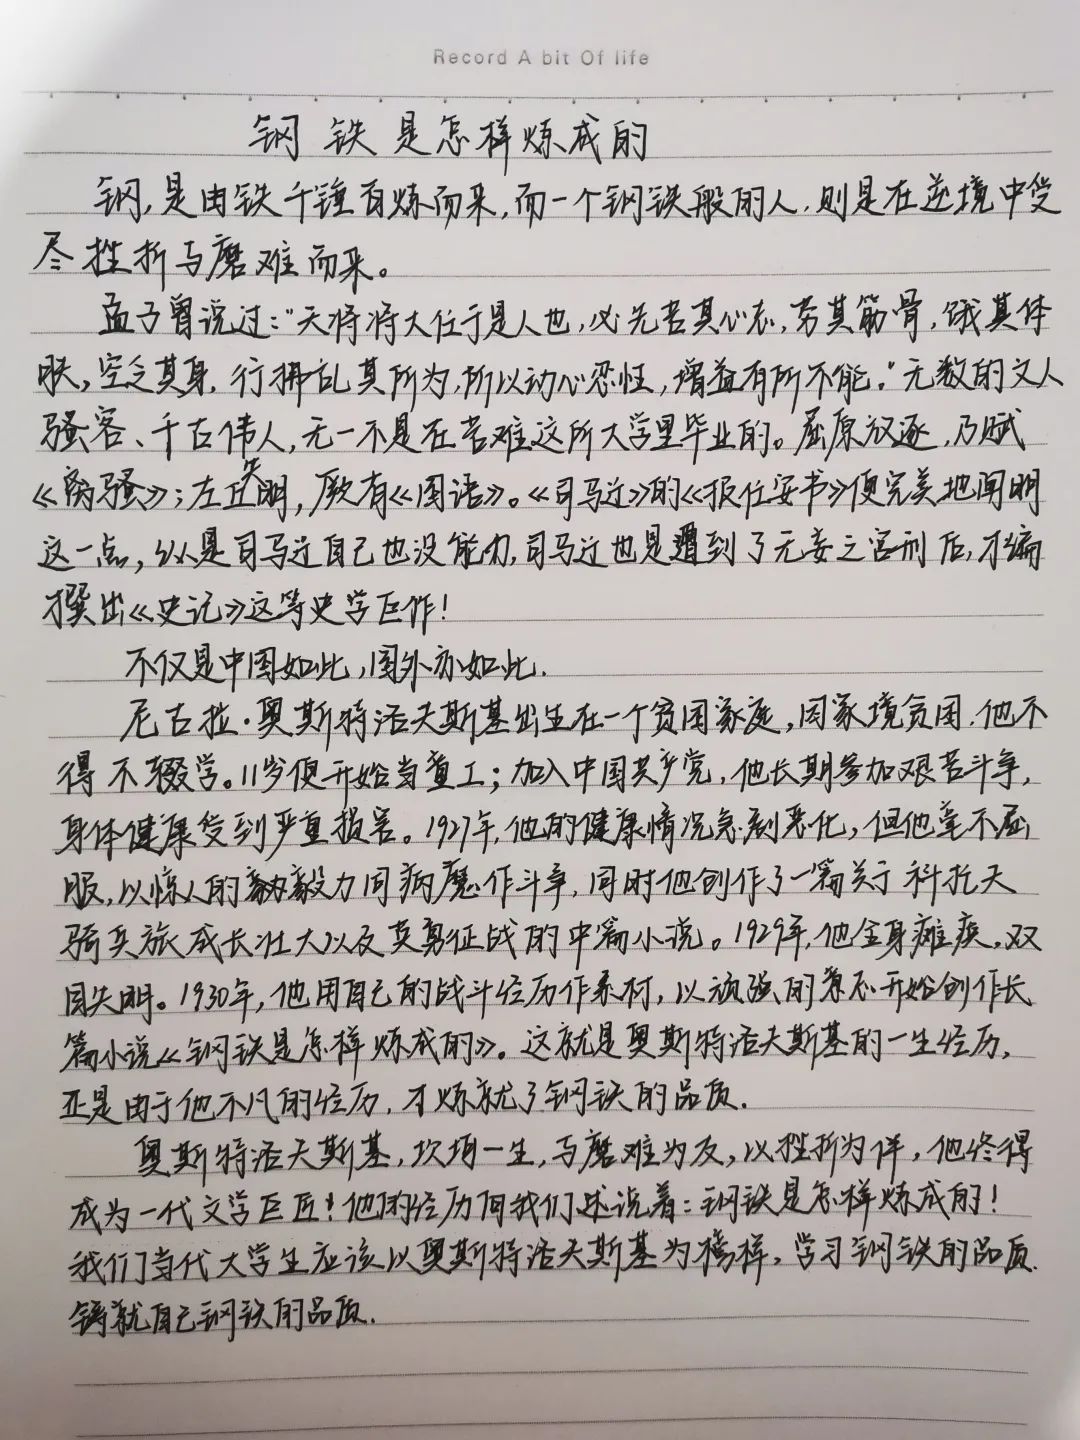 Record A bit Of life
钢铁是怎样炼成的
钢,是由铁千锤百炼而来,而一个钢铁般的人,则是在逆境中受
尽挫折与磨难而来。
孟子曾说过:"天将将大任于是人也,必先苦其心志,劳其筋骨,饿其体
肤,空乏其身,行拂乱其所为,所以动心忍性,增益有所不能。"无数的文人
骚客、千古伟人,无一不是在苦难这所大学里毕业的。屈原放逐,乃赋
《离骚》;左丘失明,厥有《国语》。《司马迁》的《报任安书》便完美地阐明
这一点,纵是司马迁自己也没能力,司马迁也是遭到了无妄之宫刑后,才编
撰出《史记》这等史学巨作!
不仅是中国如此,国外亦如此.
尼古拉·奥斯特洛夫斯基出生在一个贫困家庭,因家境贫困,他不
得不辍学。11岁便开始当童工;加入中国共产党,他长期参加艰苦斗争,
身体健康受到严重损害。1927年,他的健康情况急剧恶化,但他毫不屈
服,以惊人的毅力同病魔作斗争,同时他创作了一篇关于科托夫
骑兵旅成长壮大以及英勇征战的中篇小说。1929年,他全身瘫痪,双
目失明。1930年,他用自己的战斗经历作素材,以顽强的意志开始创作长
篇小说《钢铁是怎样炼成的》。这就是奥斯特洛夫斯基的一生经历,
正是由于他不凡的经历,才炼就了钢铁的品质.
奥斯特洛夫斯基,坎坷一生,与磨难为友,以挫折为伴,他终得
成为一代文学巨匠!他的经历向我们述说着:钢铁是怎样炼成的!
我们当代大学生应该以奥斯特洛夫斯基为榜样,学习钢铁的品质
铸就自己钢铁的品质.